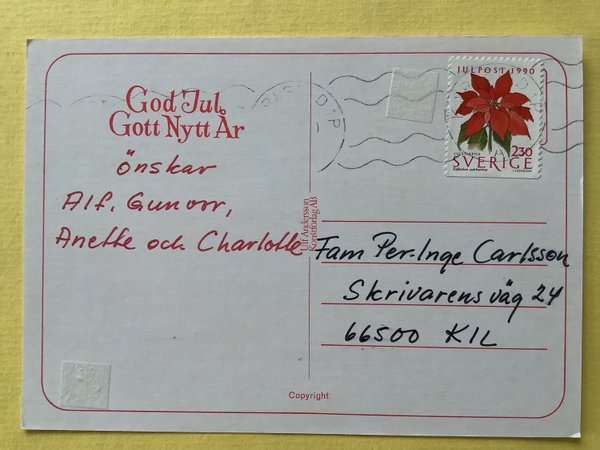 God Jul
Gott Nytt År
önskar
Alf. Gunvor,
Anette och Charlotte
Ulf Andersson
Konstförlag AB
JULPOST 1990
2.30
SVERIGE
Fam Per-Inge Carlsson
Skrivarens väg 24
66500 KIL
Copyright